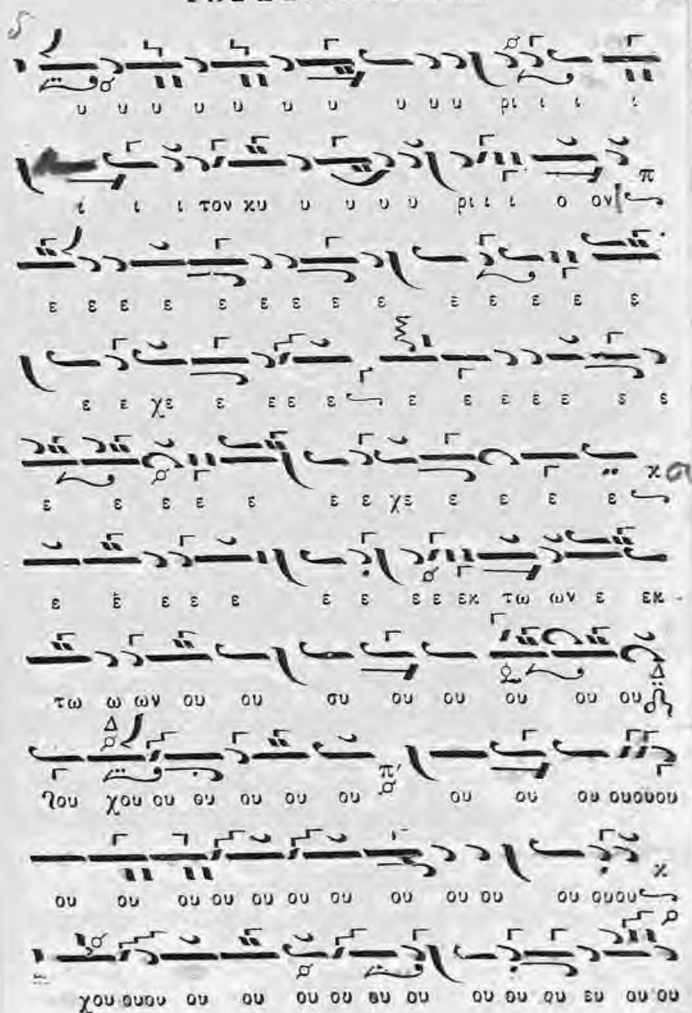 υ υ υ υ υ υ υ υ υ υ ρι ι ι ι
ι ι ι τον κυ υ υ υ υ ρι ι ι ο ον π
ε ε ε ε ε ε ε ε ε ε ε ε ε ε
ε ε χε ε ε ε ε ε ε ε ε ε ε ε
ε ε ε ε ε ε ε χε ε ε ε ε κ
ε ε ε ε ε ε ε ε ε εκ τω ων ε εκ
τω ω ων ου ου ου ου ου ου ου ου ου Δ
Δ
ου χου ου ου ου ου ου π ου ου ου ουουου
ου ου ου ου ου ου ου ου ου ου ου ουου κ
χου ουου ου ου ου ου ου ου ου ου ου ου ου ου